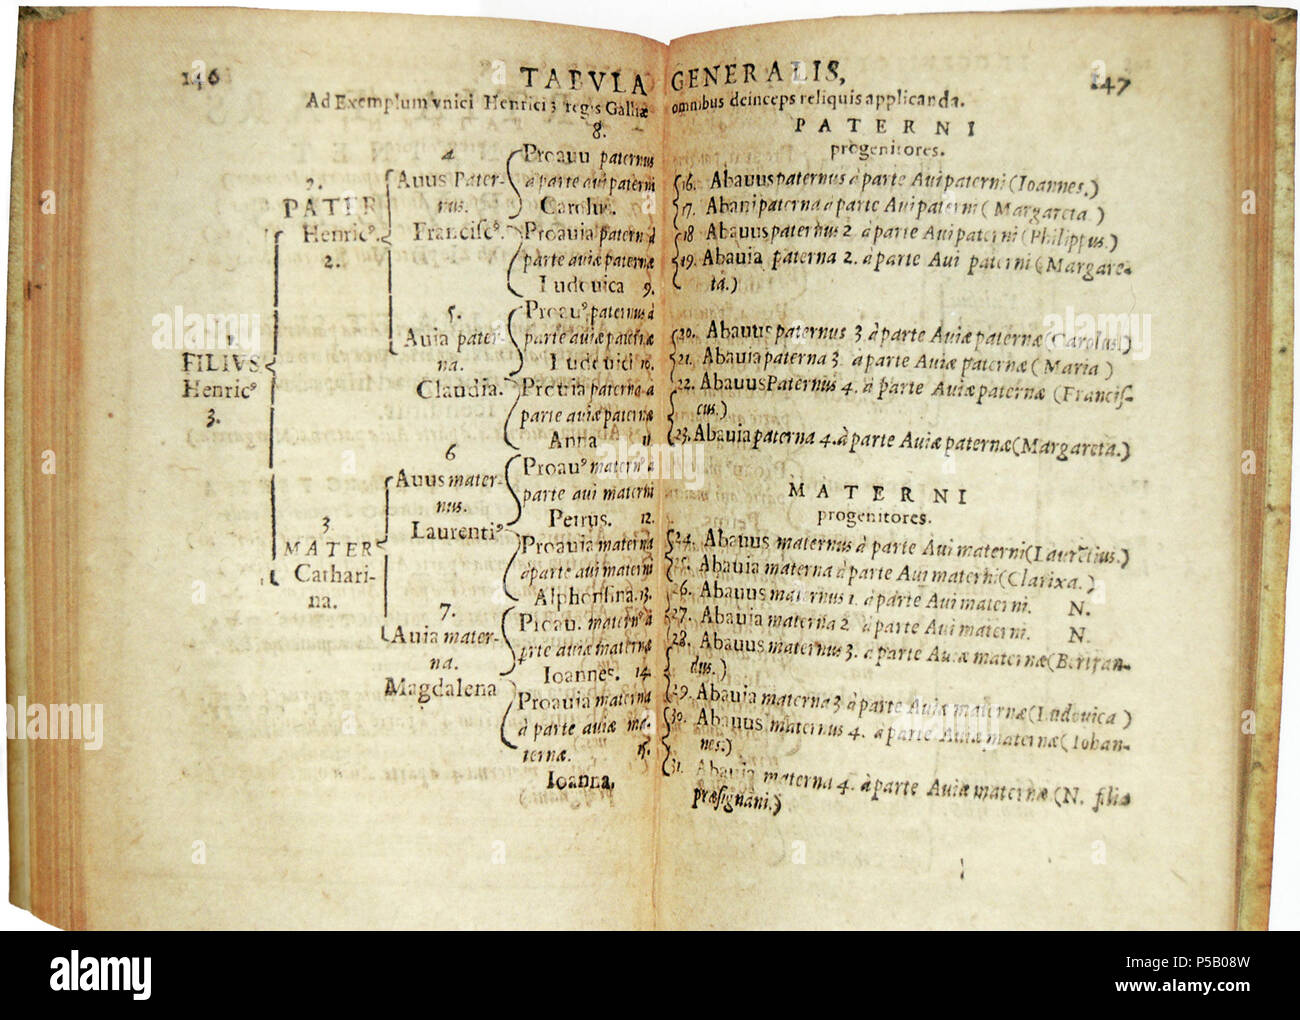 146
TABVLA
Ad Exemplum vnici Henrici 3 regis Galliæ
8.
4
Proauu paternus
Auus Pater-
à parte aui paterni
2.
nus.
Carolus.
PATER
Francisc⁹.
Proauia paterna à
Henric⁹.
parte auiæ paternæ
2.
Ludouica 9.
5.
Proau⁹ paternus à
1.
Auia pater-
parte auiæ paternæ
FILIVS
na.
Ludouici 10.
Henric⁹
Claudia.
Proauia paterna à
3.
parte auiæ paternæ
Anna 11.
6
Proau⁹ matern⁹ à
Auus mater-
parte aui materni
nus.
Petrus. 12.
3.
Laurenti⁹
Proauia materna
MATER
à parte aui materni
Cathari-
Alphonsina. 13.
na.
7.
Proau. matern⁹ à
Auia mater-
parte auiæ maternæ
na.
Ioannes. 14.
Magdalena
Proauia materna
à parte auiæ ma-
ternæ. 15.
Ioanna.
147
GENERALIS,
omnibus deinceps reliquis applicanda.
PATERNI
progenitores.
16. Abauus paternus à parte Aui paterni (Ioannes.)
17. Abaui paterna à parte Aui paterni ( Margareta )
18 Abauus paternus 2 à parte Aui paterni (Philippus.)
19. Abauia paterna 2. à parte Aui paterni (Margare-
ta.)
20. Abauus paternus 3 à parte Auiæ paternæ (Carolus.)
21. Abauia paterna 3. à parte Auiæ paternæ ( Maria )
22. Abauus Paternus 4. à parte Auiæ paternæ (Francis-
cus.)
23. Abauia paterna 4. à parte Auiæ paternæ (Margareta.)
MATERNI
progenitores.
24. Abauus maternus à parte Aui materni (Laurētius.)
25. Abauia materna à parte Aui materni (Clarixa.)
26. Abauus maternus 1. à parte Aui materni. N.
27. Abauia materna 2 à parte Aui materni. N.
28. Abauus maternus 3. à parte Auiæ maternæ (Bertran-
dus.)
29. Abauia materna 3 à parte Auiæ maternæ (Ludouica )
30. Abauus maternus 4. à parte Auiæ maternæ (Iohan-
nes.)
31. Abauia materna 4. à parte Auiæ maternæ (N. filia
præsignani.)
alamy
Image ID: P5B08W
www.alamy.com